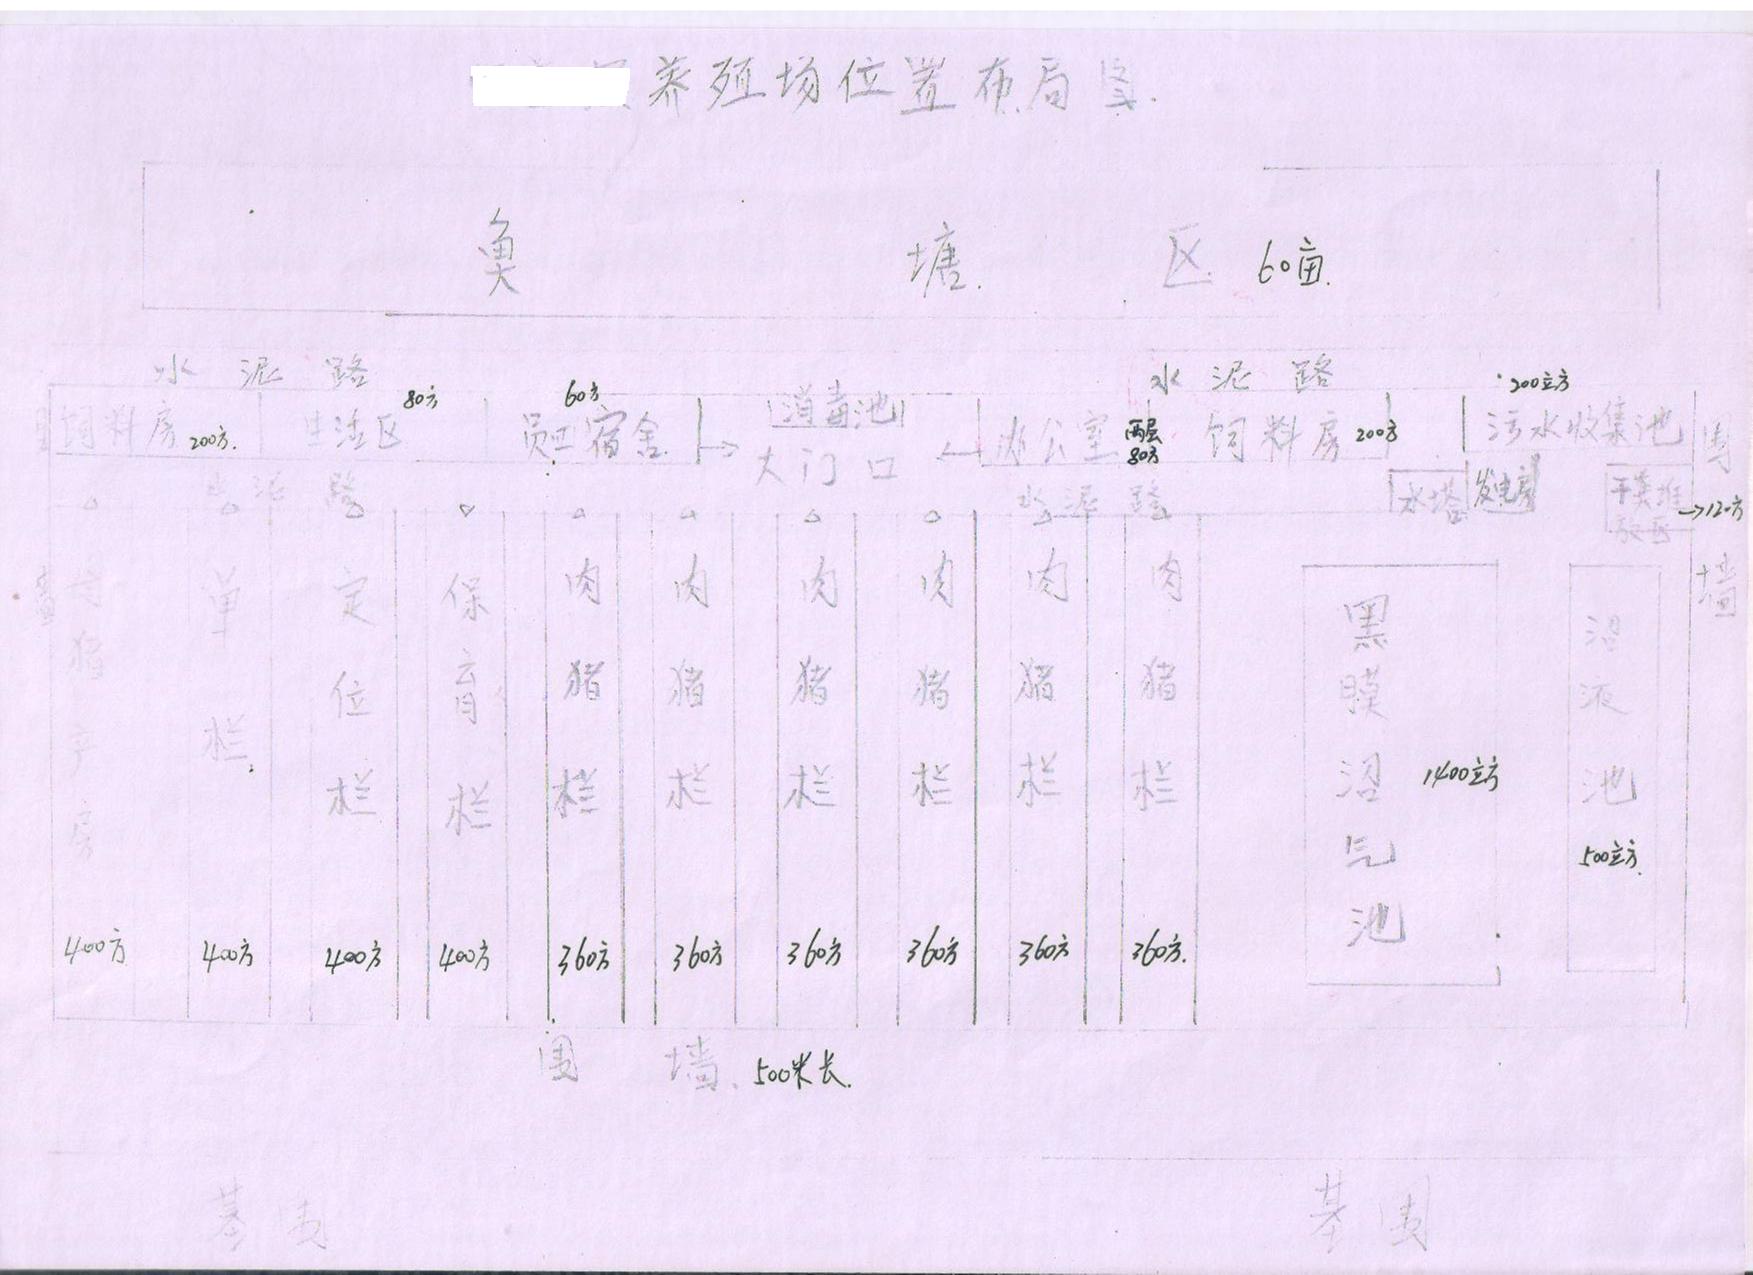 养殖场位置布局图.
鱼塘区 60亩.
水泥路
水泥路
饲料房 200方.
生活区 80方
员工宿舍 60方
消毒池
大门口
办公室 两层 80方
饲料房 200方
污水收集池 200立方
围墙
水泥路
水泥路
水塔
发电房
干粪堆
→120方
母猪产房 400方
单栏 400方
定位栏 400方
保育栏 400方
肉猪栏 360方
肉猪栏 360方
肉猪栏 360方
肉猪栏 360方
肉猪栏 360方
肉猪栏 360方.
黑膜沼气池 1400立方
沼液池 500立方.
围墙. 500米长.
基围
基围